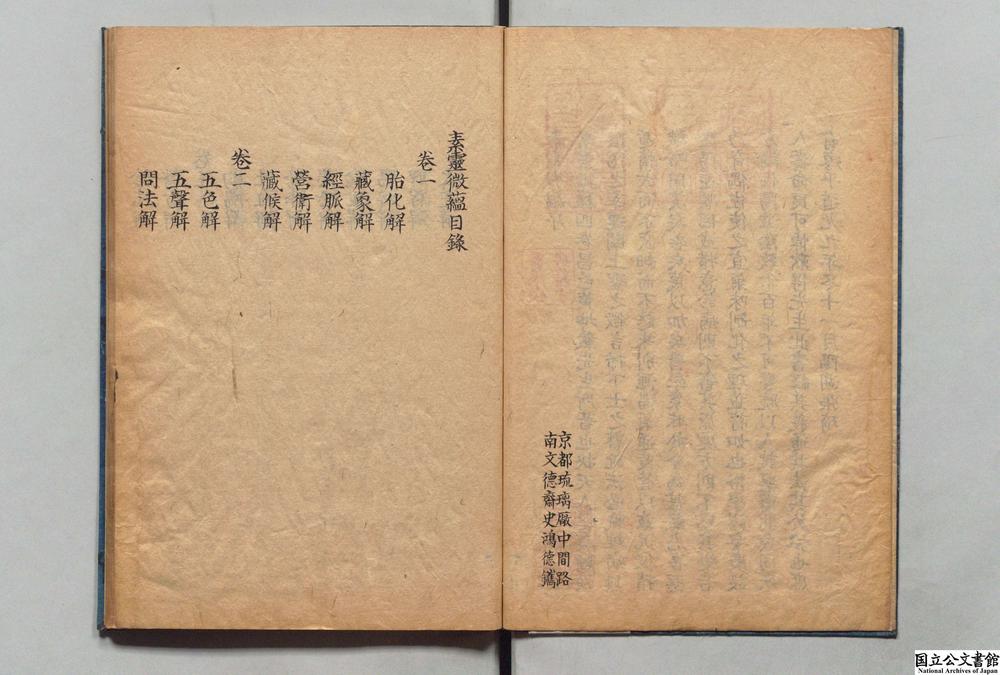 京都琉璃厰中間路
南文德齋史鴻德鐫
素靈微蘊目錄
卷一
胎化解
藏象解
經脈解
營衞解
藏候解
卷二
五色解
五聲解
問法解
国立公文書館
National Archives of Japan